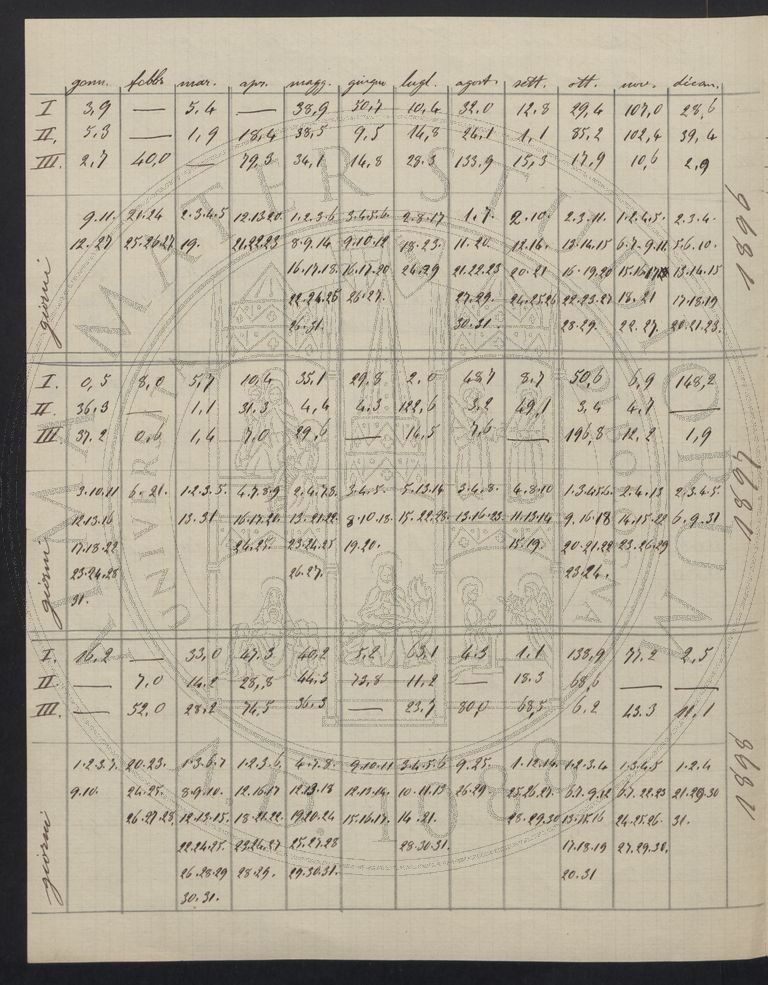 genn. febb. mar. apr. magg. giugno lugl. agost. sett. ott. nov. dicem.
I 3,9 — 5,4 — 38,9 50,7 10,4 32,0 12,8 29,4 107,0 28,6
II. 5,3 — 1,9 18,4 38,5 9,5 14,8 24,1 1,1 85,2 102,4 39,4
III. 2,7 40,0 — 79,3 34,1 14,8 28.3 133,9 15,3 17,9 10,6 2,9
1896
giorni
9.11. 21.24 2.3.4.5 12.13.20 1.2.3.6 3.4.5.6 2.8.17 1.7. 2.10. 2.3.11. 1.2.4.5. 2.3.4.
12.27 25.26.27 19. 21.22.23 8.9.14 9.10.12 18.23. 11.20. 12.14. 13.14.15 6.7.9.11. 5.6.10.
16.17.18. 16.17.20 24.29 21.22.23 20.21 16.19.20 13.14.15
22.24.25 26.27. 27.29. 24.25.26 22.23.27 18.21 17.18.19
26.31. 30.31. 28.29. 22.27. 20.21.23.
I. 0,5 8,0 5,7 10,4 35,1 29,8 2,0 48,7 8,7 50,6 6,9 148,2
II. 36,3 — 1,1 31,3 4,4 4,3 122,6 3,2 49,1 3,4 4,7 —
III. 37,2 0,6 1,4 7,0 29,6 — 14,5 7,6 — 196,8 12,2 1,9
1897
giorni
9.10.11 6.21. 1.2.3.5. 4.7.8.9 2.4.7.8. 3.4.5. 5.13.14 3.4.8. 4.8.10 1.3.4.5.6. 2.4.13 2.3.4.5
12.13.16 13.31 16.17.20 13.21.22 8.10.18. 15.22.23. 13.16.23 11.13.14 9.16.18 14.15.22 6.9.31
17.18.22 24.25. 23.24.25 19.20. 15.19. 20.21.22 23.26.29
23.24.28 26.27. 23.24.
31.
I. 16,2 — 33,0 47.3 40,2 5,2 63,1 4.3 1.1 138,9 77.2 2,5
II. — 7,0 14.2 28,8 44,3 73,8 11,2 — 18.3 68,6 — —
III. — 52,0 28,2 74,5 36,3 — 23,7 80,0 68,5 6,2 43.3 11,1
1898
giorni
1.2.3.7. 20.23. 1.3.6.7 1.2.3.6. 4.7.8. 9.10.11 3.4.5.6 9.25. 1.12.14. 1.2.3.4 1.3.4.5 1.2.4
9.10. 24.25. 8.9.10. 12.16.17 12.13.18 12.13.14. 10.11.13 26.29 25.26.27. 6.7.9.12 6.7.22.23 21.29.30
26.27.28. 12.13.15. 18.21.22 19.20.24 15.16.17. 14.21. 28.29.30 13.15.16 24.25.26. 31.
22.24.25. 23.26.27 25.27.28 28.30.31. 17.18.19 27.29.30.
26.28.29 28.29. 29.30.31. 20.31
30.31.
ALMA MATER STUDIORUM
A.D. 1088